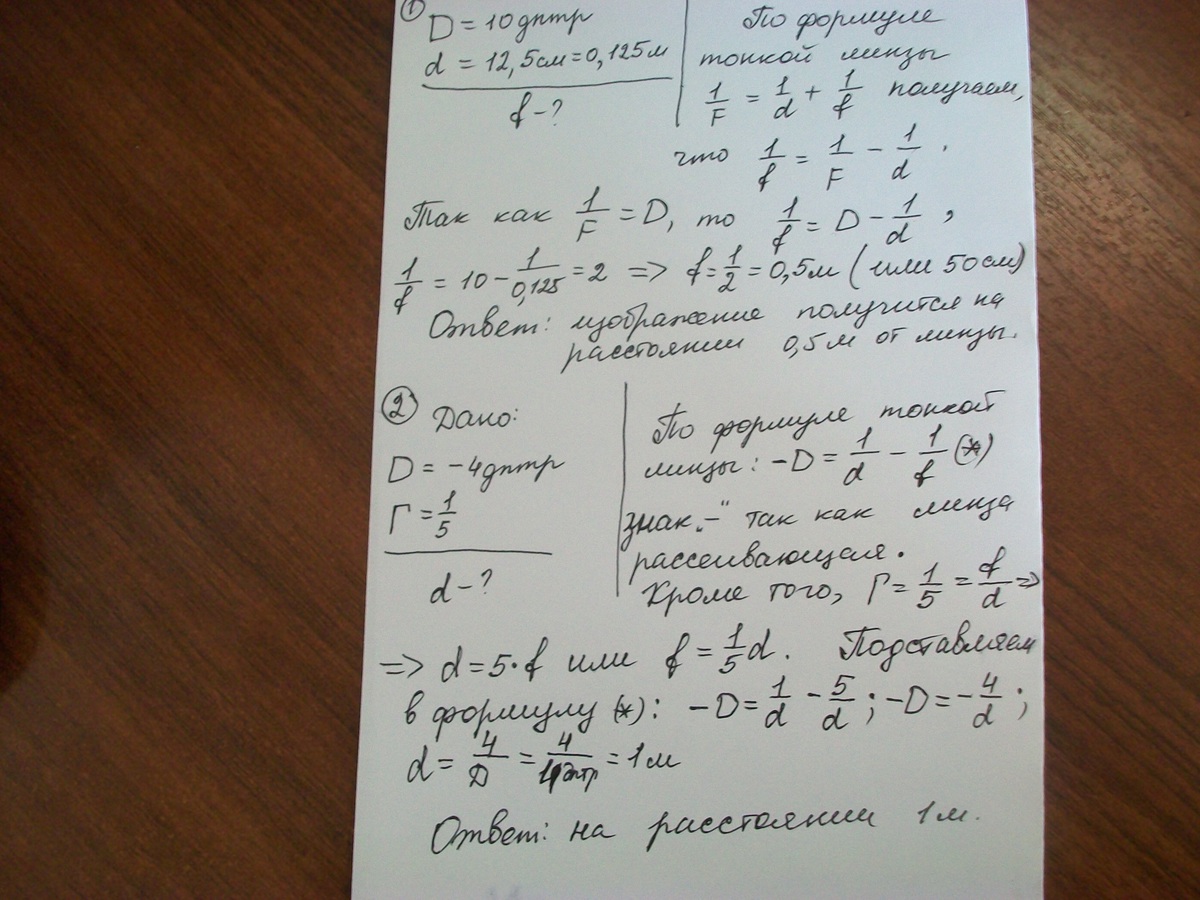 ①
D = 10 дптр
d = 12,5см = 0,125м
f - ?
По формуле
тонкой линзы
1/F = 1/d + 1/f получаем,
что 1/f = 1/F - 1/d .
Так как 1/F = D, то 1/f = D - 1/d ,
1/f = 10 - 1/0,125 = 2 => f = 1/2 = 0,5м (или 50см)
Ответ: изображение получится на
расстоянии 0,5м от линзы.
② Дано:
D = -4дптр
Г = 1/5
d - ?
По формуле тонкой
линзы: -D = 1/d - 1/f (*)
знак „-“ так как линза
рассеивающая.
Кроме того, Г = 1/5 = f/d =>
=> d = 5·f или f = 1/5 d. Подставляем
в формулу (*): -D = 1/d - 5/d ; -D = -4/d ;
d = 4/D = 4/4дптр = 1м
Ответ: на расстоянии 1м.